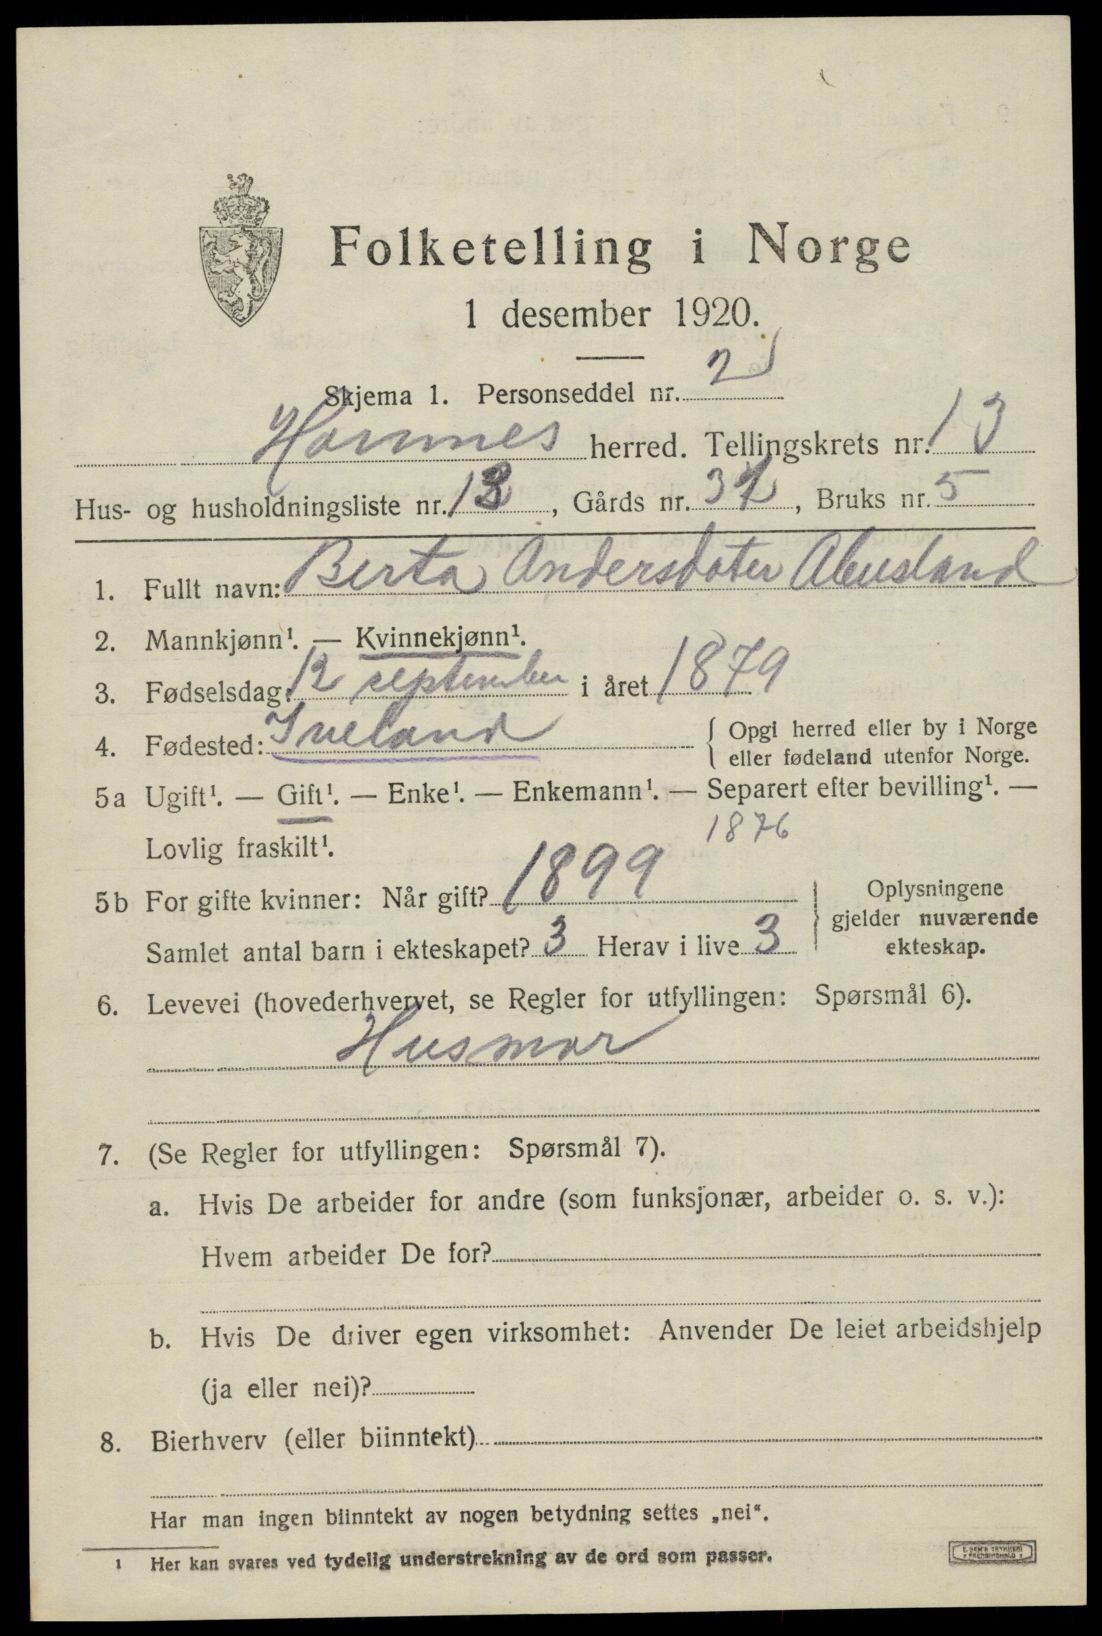 Folketelling i Norge
1 desember 1920.
Skjema 1. Personseddel nr. 2
Hornnes herred. Tellingskrets nr. 13
Hus- og husholdningsliste nr. 13, Gårds nr. 32, Bruks nr. 5
1. Fullt navn: Berta Andersdater Abusland
2. Mannkjønn¹. — Kvinnekjønn¹.
3. Fødselsdag: 12 september i året 1879
4. Fødested: Iveland { Opgi herred eller by i Norge
eller fødeland utenfor Norge.
5a Ugift¹. — Gift¹. — Enke¹. — Enkemann¹. — Separert efter bevilling¹. —
Lovlig fraskilt¹. 1876
5b For gifte kvinner: Når gift? 1899
Samlet antal barn i ekteskapet? 3 Herav i live 3
} Oplysningene
gjelder nuværende
ekteskap.
6. Levevei (hovederhvervet, se Regler for utfyllingen: Spørsmål 6).
Husmor
7. (Se Regler for utfyllingen: Spørsmål 7).
a. Hvis De arbeider for andre (som funksjonær, arbeider o. s. v.):
Hvem arbeider De for?
b. Hvis De driver egen virksomhet: Anvender De leiet arbeidshjelp
(ja eller nei)?
8. Bierhverv (eller biinntekt)
Har man ingen biinntekt av nogen betydning settes „nei“.
¹ Her kan svares ved tydelig understrekning av de ord som passer.